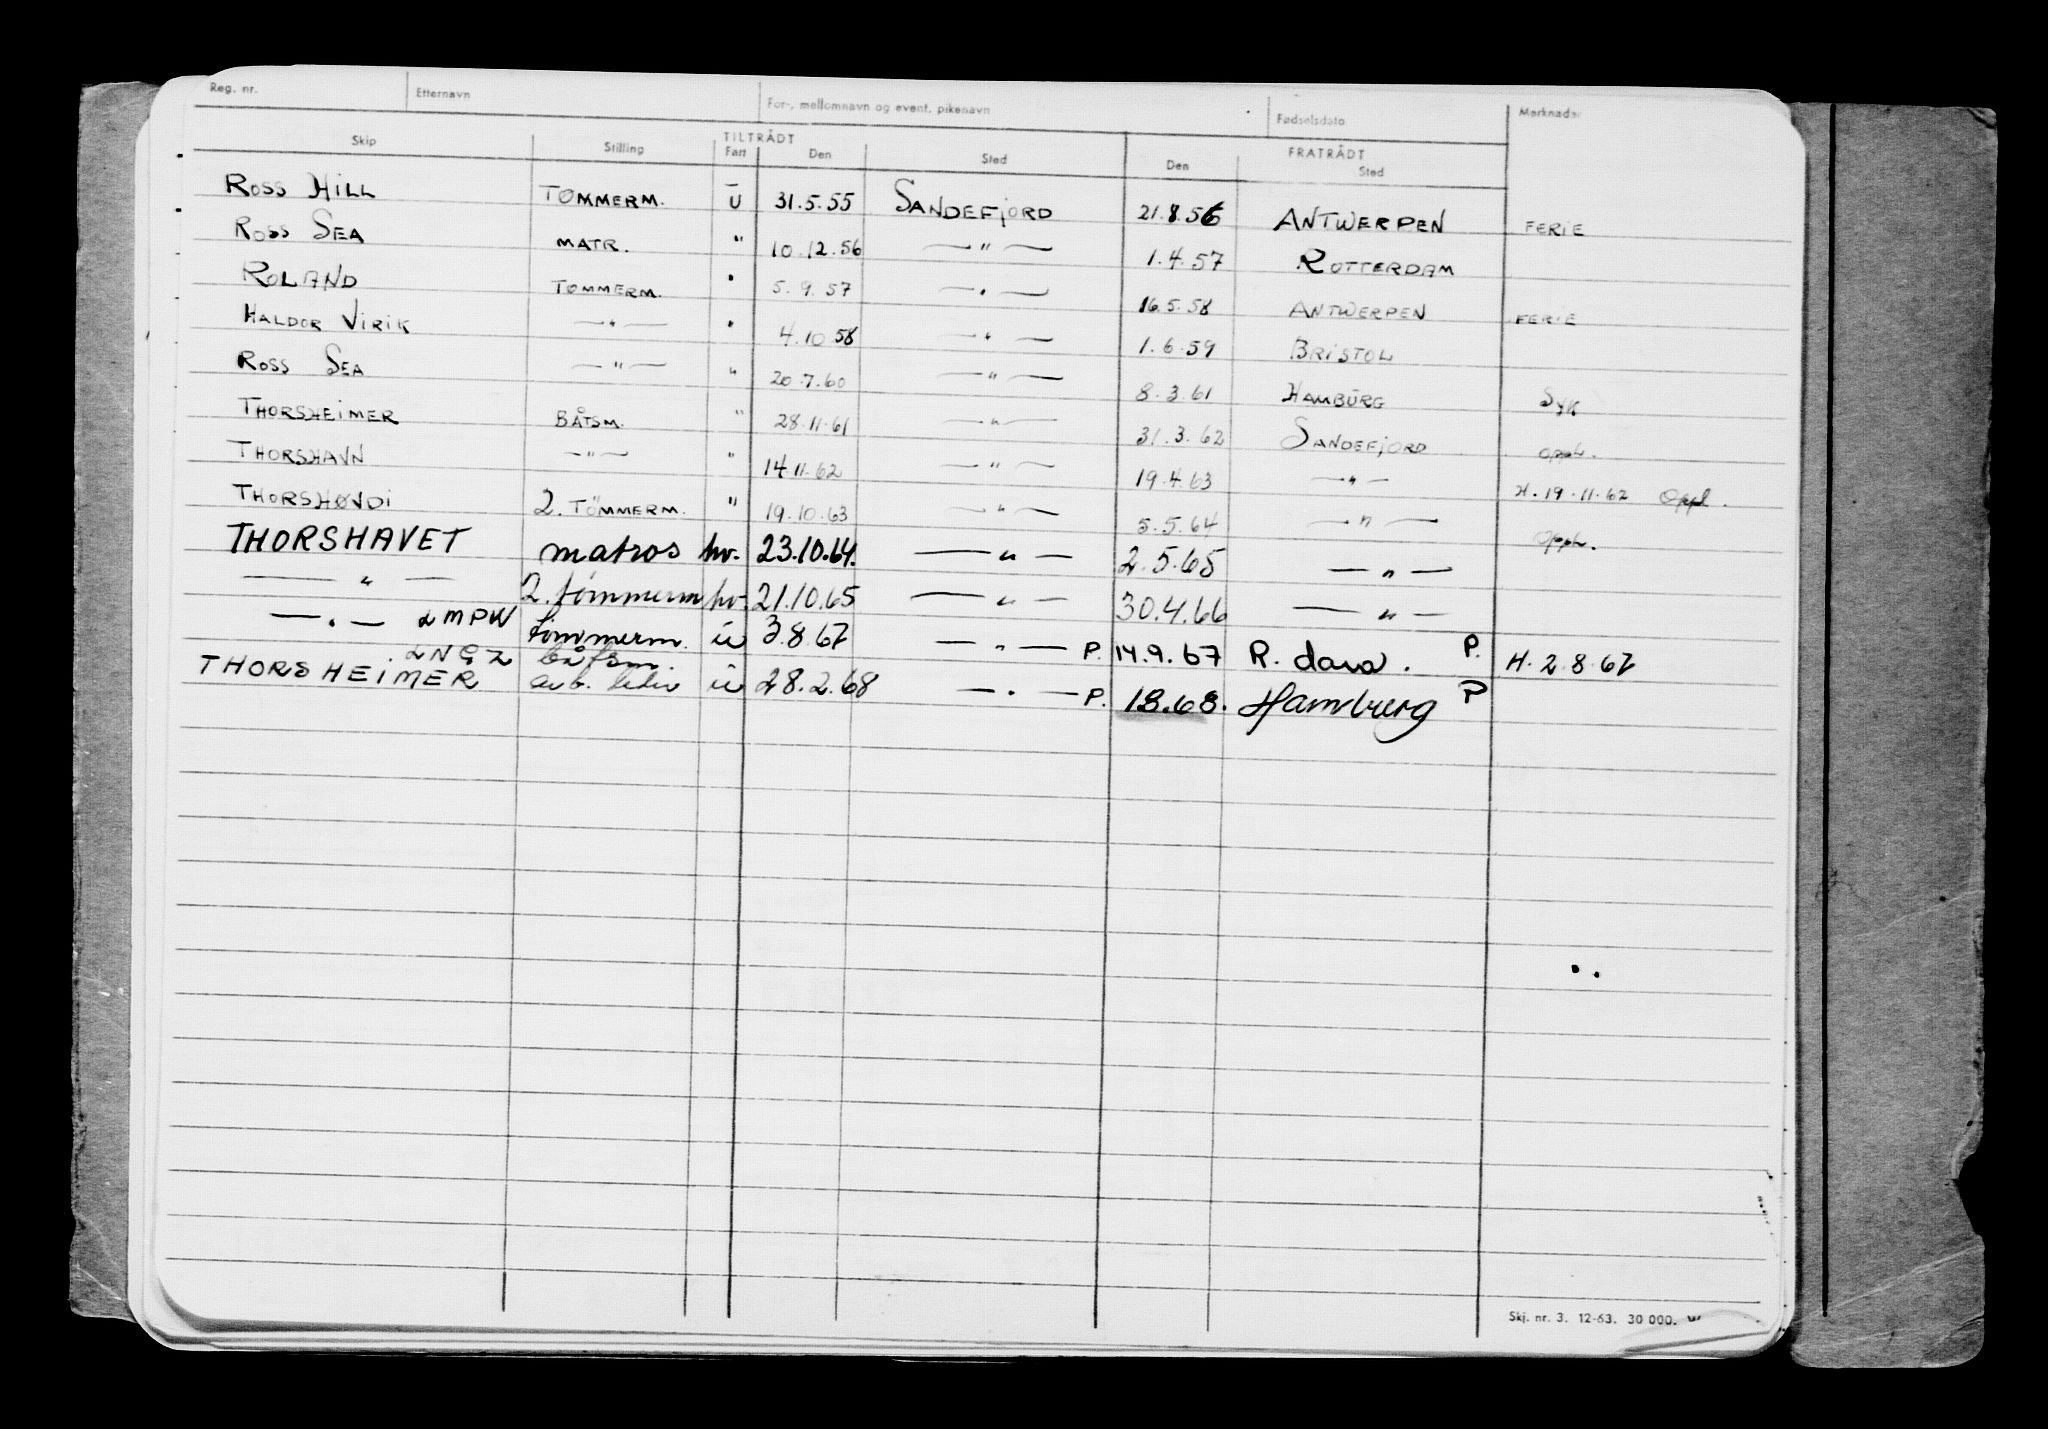 Reg. nr. Etternavn For-, mellomnavn og event. pikenavn Fødselsdato Merknader
TILTRÅDT FRATRÅDT
Skip Stilling Fart Den Sted Den Sted
ROSS HILL TØMMERM. U 31.5.55 SANDEFJORD 21.8.56 ANTWERPEN FERIE
ROSS SEA MATR. " 10.12.56 — " — 1.4.57 ROTTERDAM
ROLAND TØMMERM. " 5.9.57 — " — 16.5.58 ANTWERPEN FERIE
HALDOR VIRIK — " — " 4.10.58 — " — 1.6.59 BRISTOL
ROSS SEA — " — " 20.7.60 — " — 8.3.61 HAMBURG SYK
THORSHEIMER BÅTSM. " 28.11.61 — " — 31.3.62 SANDEFJORD opph.
THORSHAVN — " — " 14.11.62 — " — 19.4.63 — " — H. 19.11.62 Oppl.
THORSHØVDI 2. TÖMMERM. " 19.10.63 — " — 5.5.64 — " — opph.
THORSHAVET matros hv. 23.10.64. — " — 2.5.65 — " —
— " — 2. tømmerm hv. 21.10.65 — " — 30.4.66 — " —
— " — LMPW tømmerm. u 3.8.67 — " — P. 14.9.67 R. dava. P. H. 2.8.67
LNGZ båtsm.
THORSHEIMER arb. leder u 28.2.68 — " — P. 1.8.68. Hamburg P
Skj. nr. 3. 12-63. 30 000. W